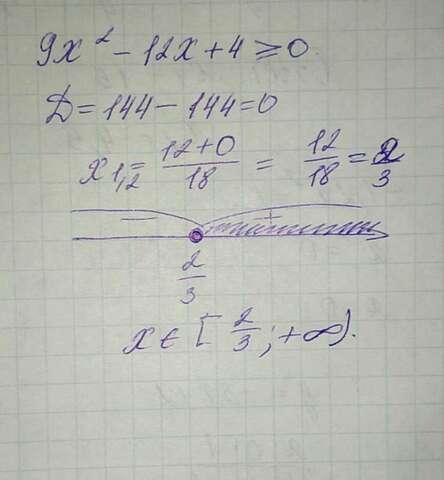 9x² - 12x + 4 ≥ 0
D = 144 - 144 = 0
x₁,₂ = (12+0)/18 = 12/18 = 2/3
- +
2/3
x ∈ [2/3; +∞).